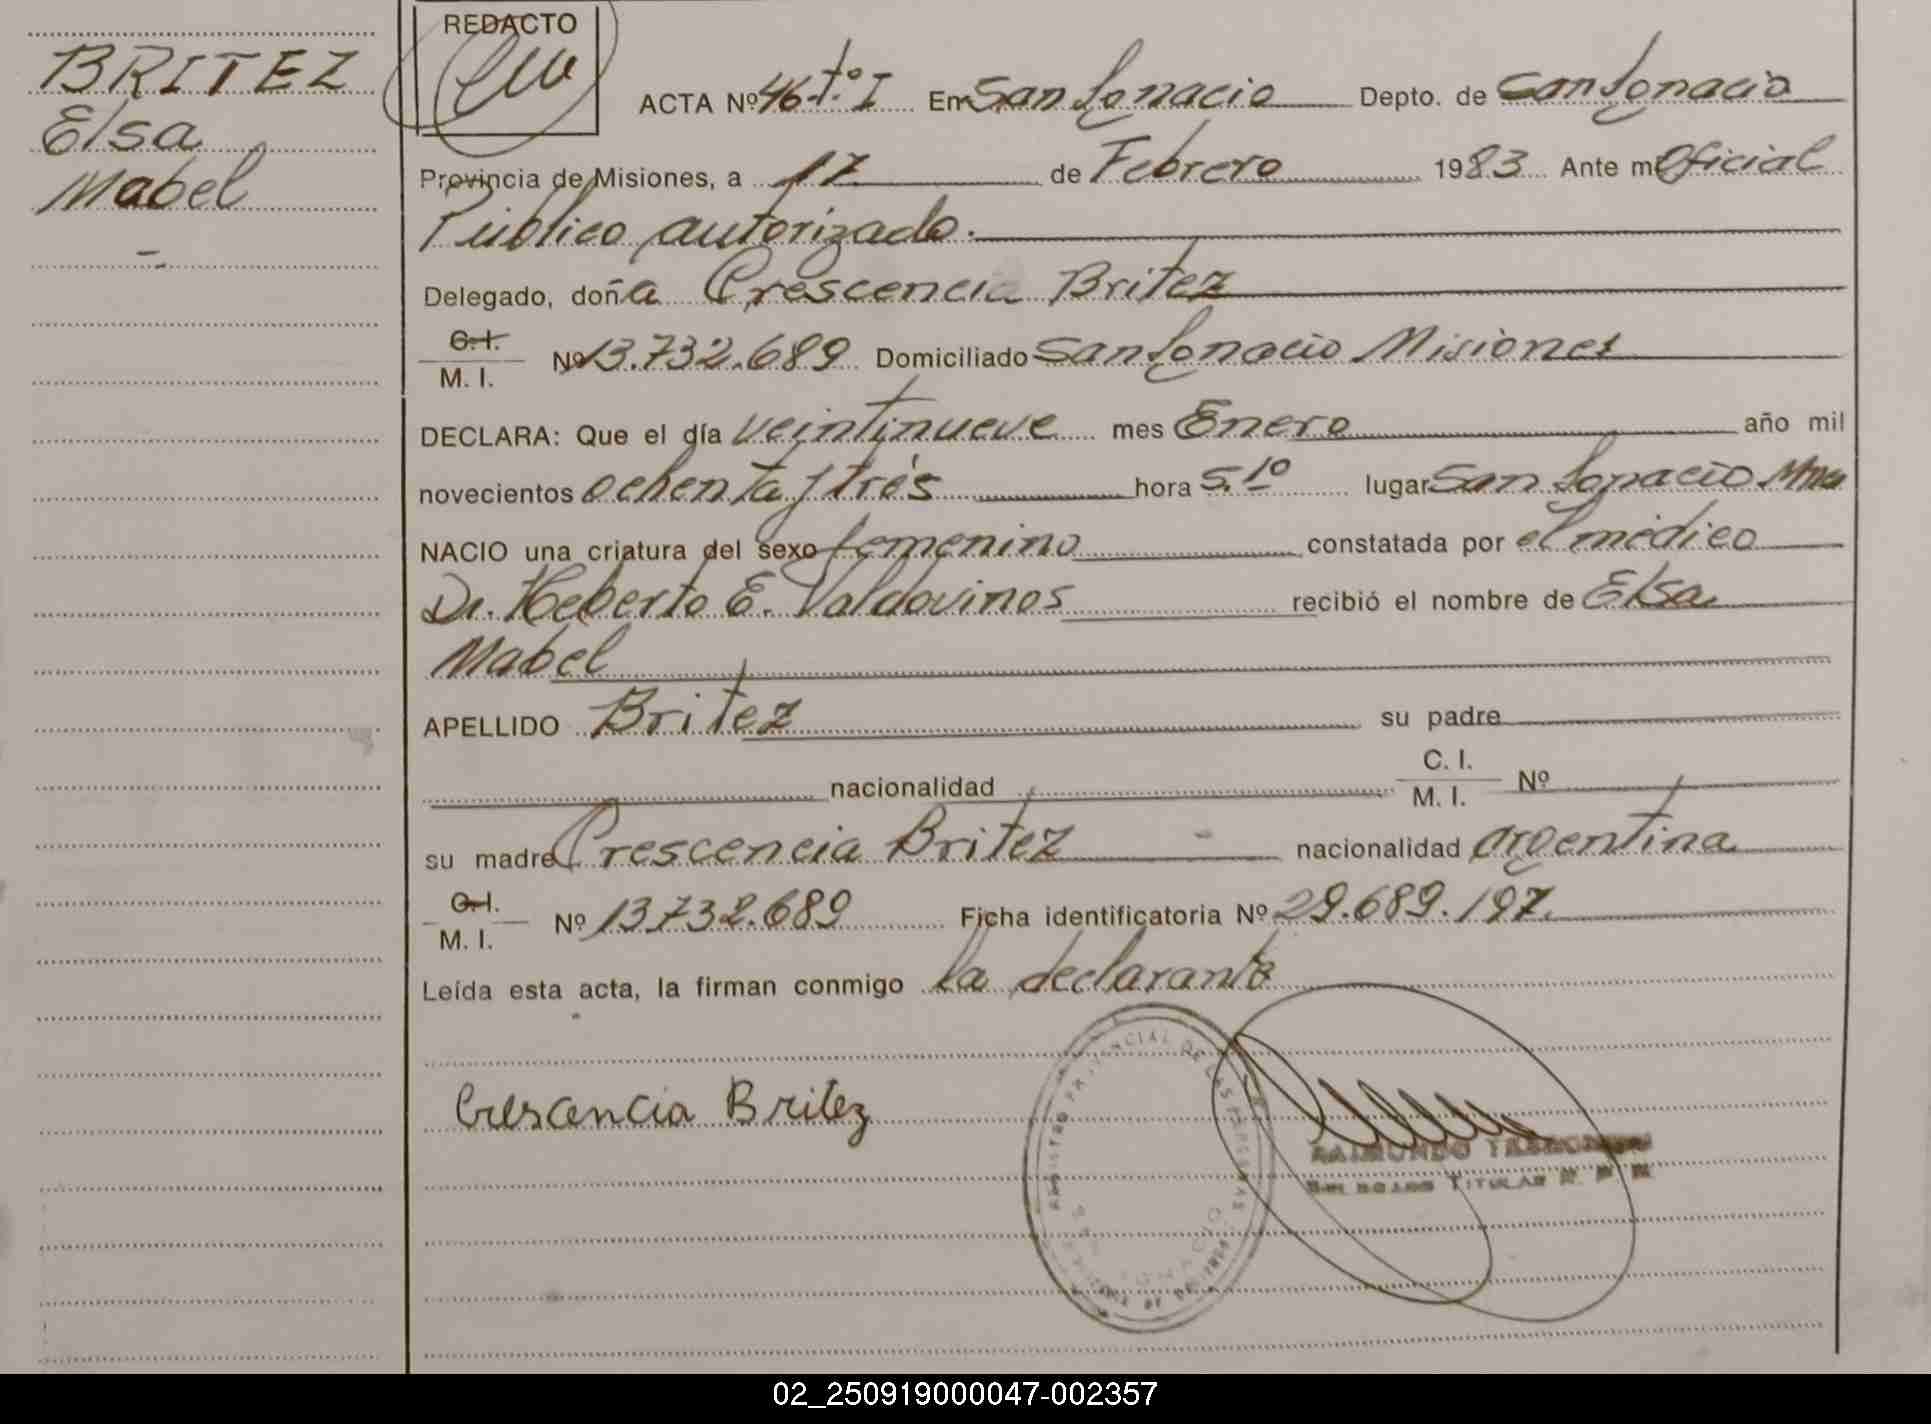 BRITEZ
Elsa
Mabel
REDACTO
ACTA Nº 46 tº I En San Ignacio Depto. de San Ignacio
Provincia de Misiones, a 17 de Febrero 1983 Ante mi Oficial
Público autorizado.
Delegado, doña Crescencia Britez
C.I.
M. I. Nº 13.732.689 Domiciliado San Ignacio Misiones
DECLARA: Que el día veintinueve mes Enero año mil
novecientos ochenta y trés hora 5.10 lugar San Ignacio Mnes
NACIO una criatura del sexo femenino constatada por el médico
Dr. Heberto E. Valdovinos recibió el nombre de Elsa
Mabel
APELLIDO Britez su padre
nacionalidad C. I.
M. I. Nº
su madre Crescencia Britez nacionalidad argentina
C.I.
M. I. Nº 13.732.689 Ficha identificatoria Nº 29.689.197.
Leída esta acta, la firman conmigo la declarante
Crescencia Britez
REGISTRO PROVINCIAL DE LAS PERSONAS
SAN IGNACIO
RAIMUNDO
TITULAR R. P. P.
02_250919000047-002357